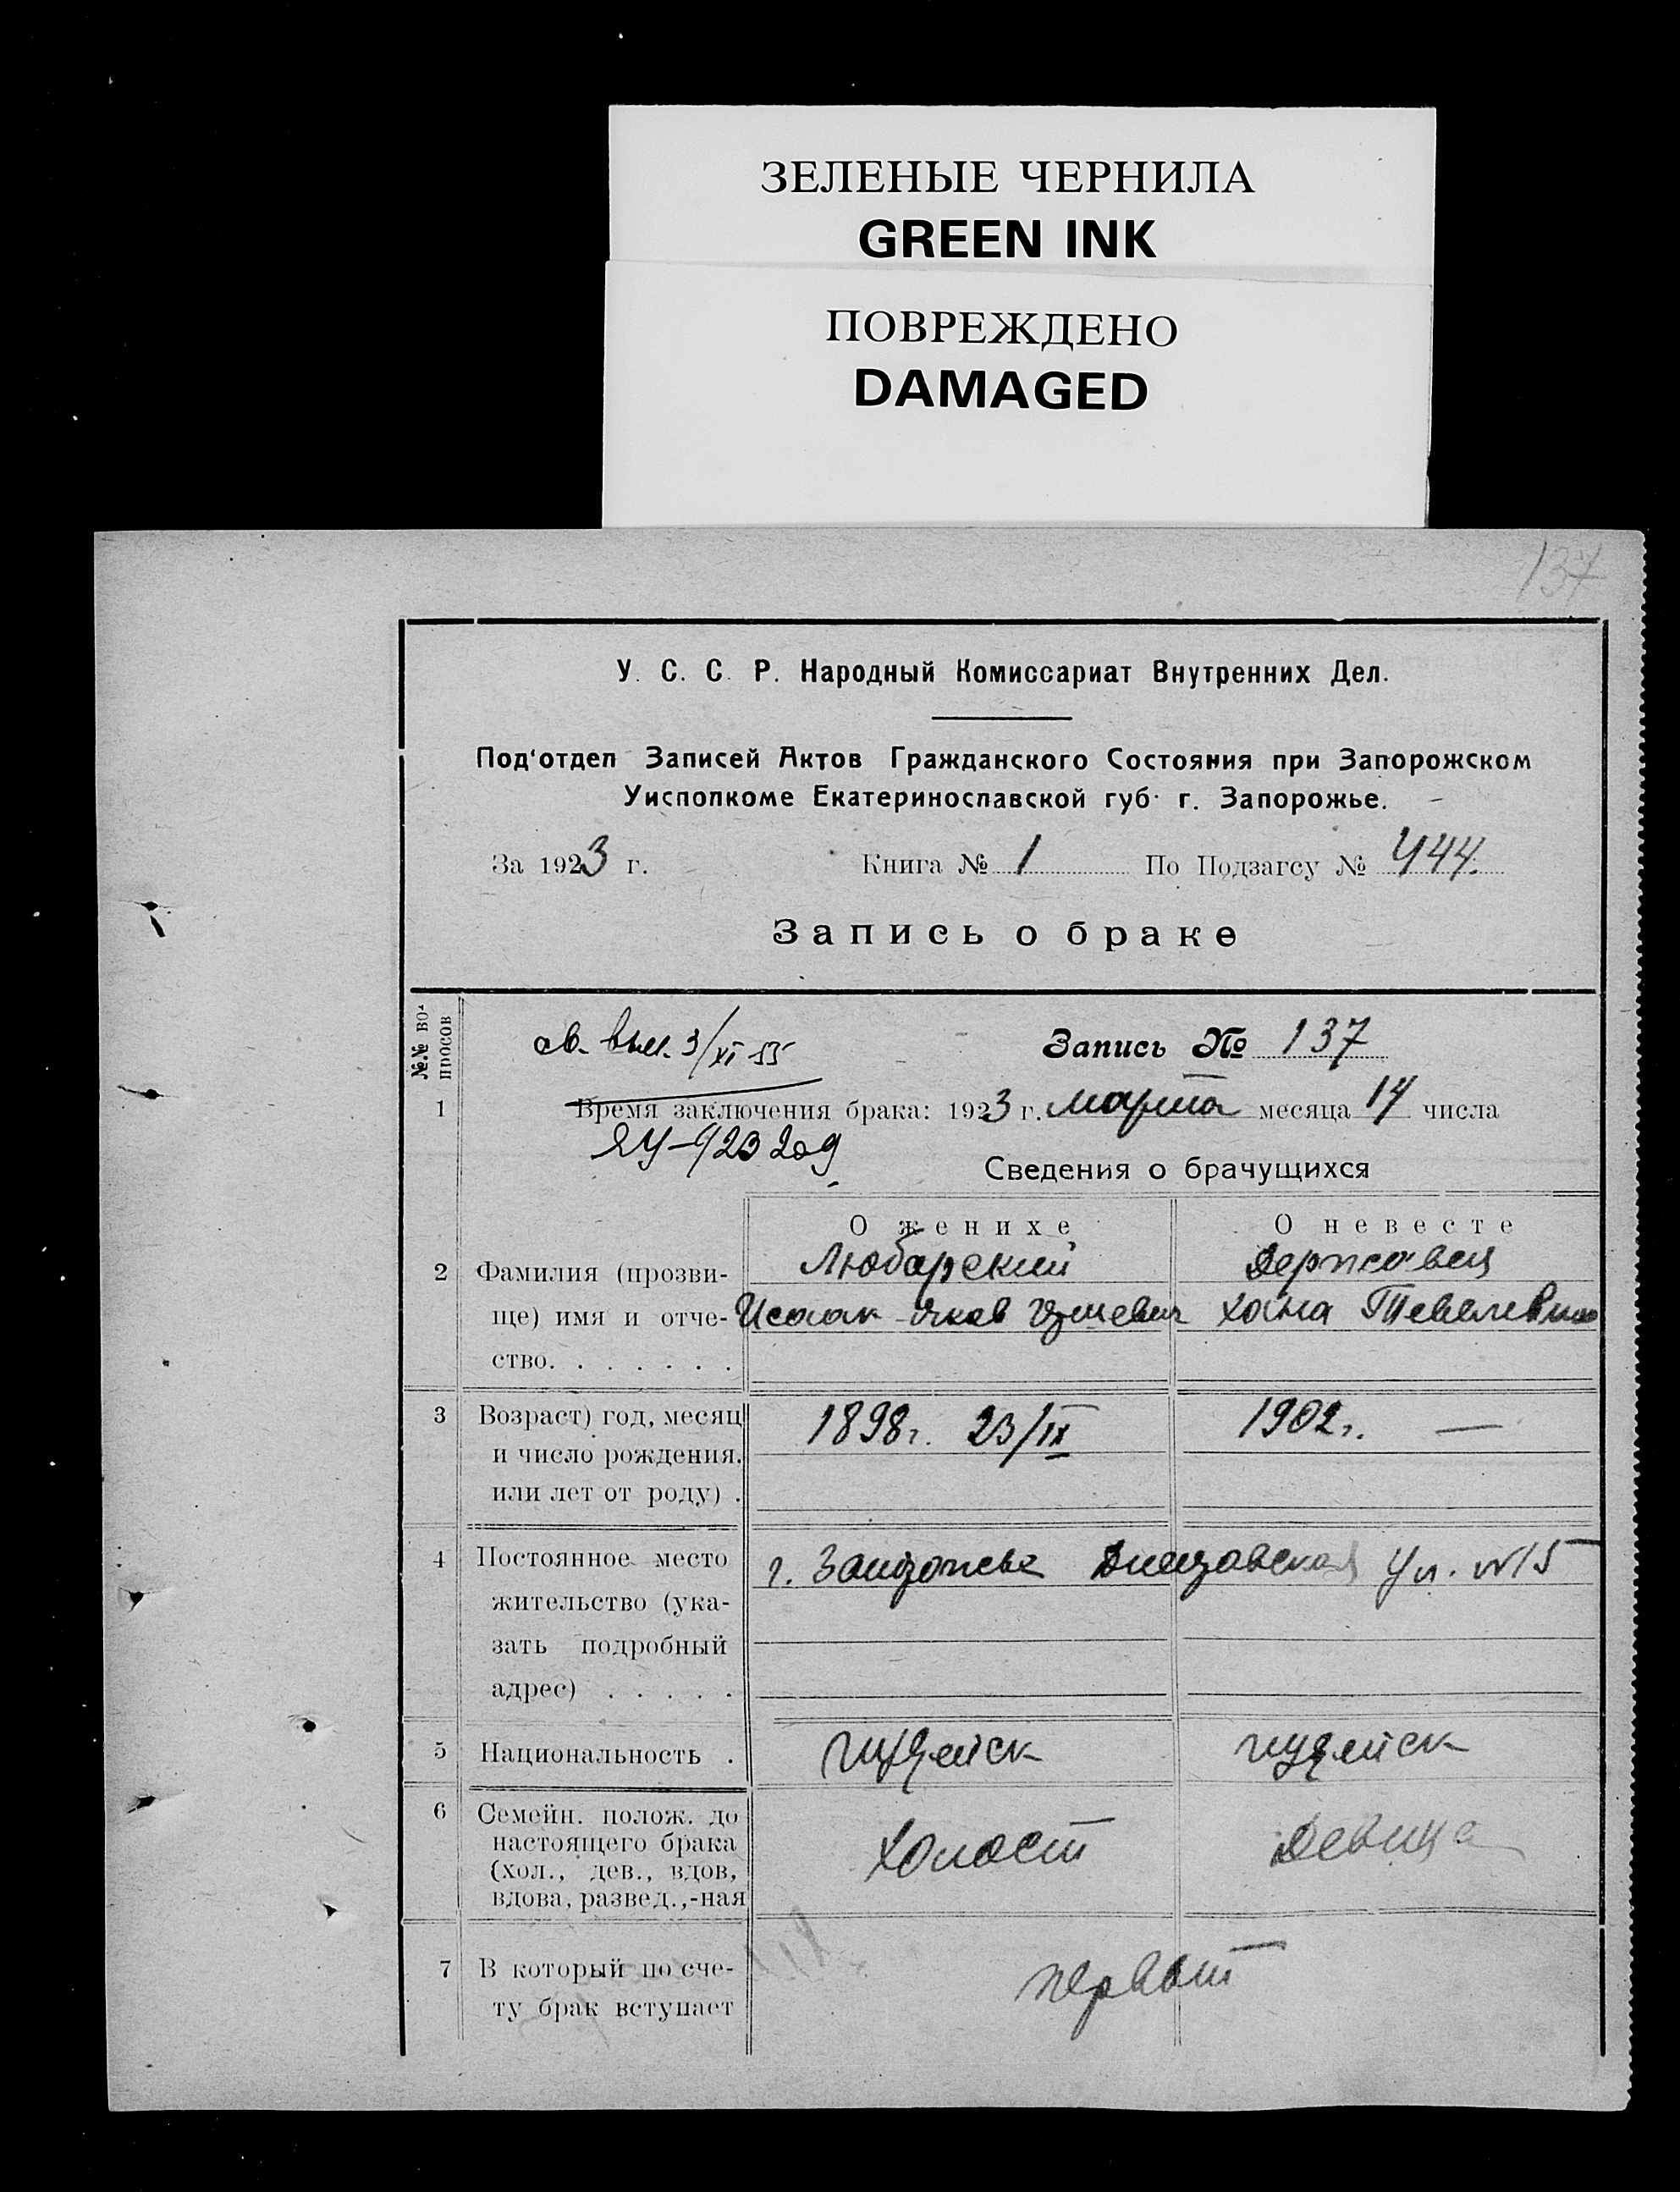 ЗЕЛЕНЫЕ ЧЕРНИЛА
GREEN INK
ПОВРЕЖДЕНО
DAMAGED
137
У. С. С. Р. Народный Комиссариат Внутренних Дел.
Под'отдел Записей Актов Гражданского Состояния при Запорожском
Уисполкоме Екатеринославской губ. г. Запорожье.
За 1923 г. Книга № 1 По Подзагсу № 444.
Запись о браке
№№ вопросов
св. выд. 3/XI 55 Запись № 137
1 Время заключения брака: 1923 г. марта месяца 14 числа
ЯУ
Сведения о брачущихся
О женихе О невесте
2 Фамилия (прозви- Любарский Державец
ще) имя и отче- Исаак Яков Хана Тевелевна
ство. . . . . . .
3 Возраст) год, месяц 1898г. 23/IX 1902г. —
и число рождения.
или лет от роду) .
4 Постоянное место г. Запорожье ул. №15
жительство (ука-
зать подробный
адрес) . . . . .
5 Национальность . иудейск иудейск
6 Семейн. полож. до
настоящего брака холост девица
(хол., дев., вдов,
вдова, развед.,-ная
7 В который по сче- первый
ту брак вступает